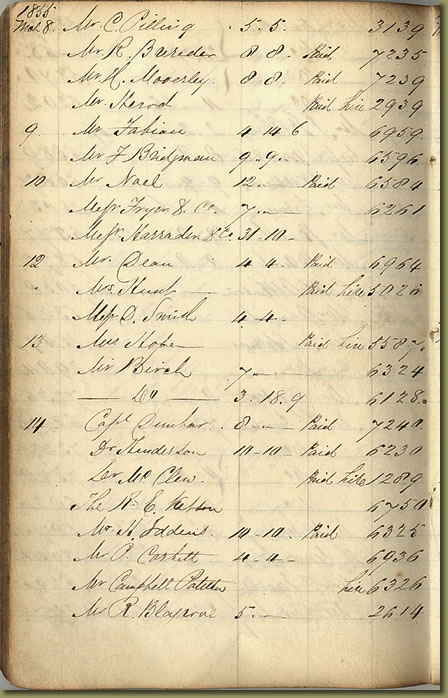 1855
Mch 8. Mr C. Pilling 5. 5. 3139
Mr R. 8 8 - Paid 7235
Mr H. Mooerley 8 8. Paid 7239
Mr Herod Paid hire 2939
9 Mr Fabian 4 14 6 6959
Mr J Bridgman 9 . 9 . - 6596
10 Mr Noel 12 . - Paid 6584
Messrs Fryer & Co. 7 . - 6261
Messrs Harraden & Co 31 - 10 -
12 Mr. Dean 4 4 - Paid 6964
Mrs Hunt Paid hire 5026
Mess D. Smith 4 - 4 -
13 Mrs Hope Paid hire 5587
Mr Birch 7 . - 6324
— Do — 3 . 18 . 9 6128
14 Capt Dunbar 8 . - Paid 7240
Dr Henderson 10 - 10 - Paid 6230
Mc Clew. Paid hire 1289
The R. E. 6750
Mr H. Iddens 10 - 10 - Paid 6325
Mr P. 4 - 4 - 6936
Mr Campbell hire 6326
Mr R. Blagrove 5 . - 2614